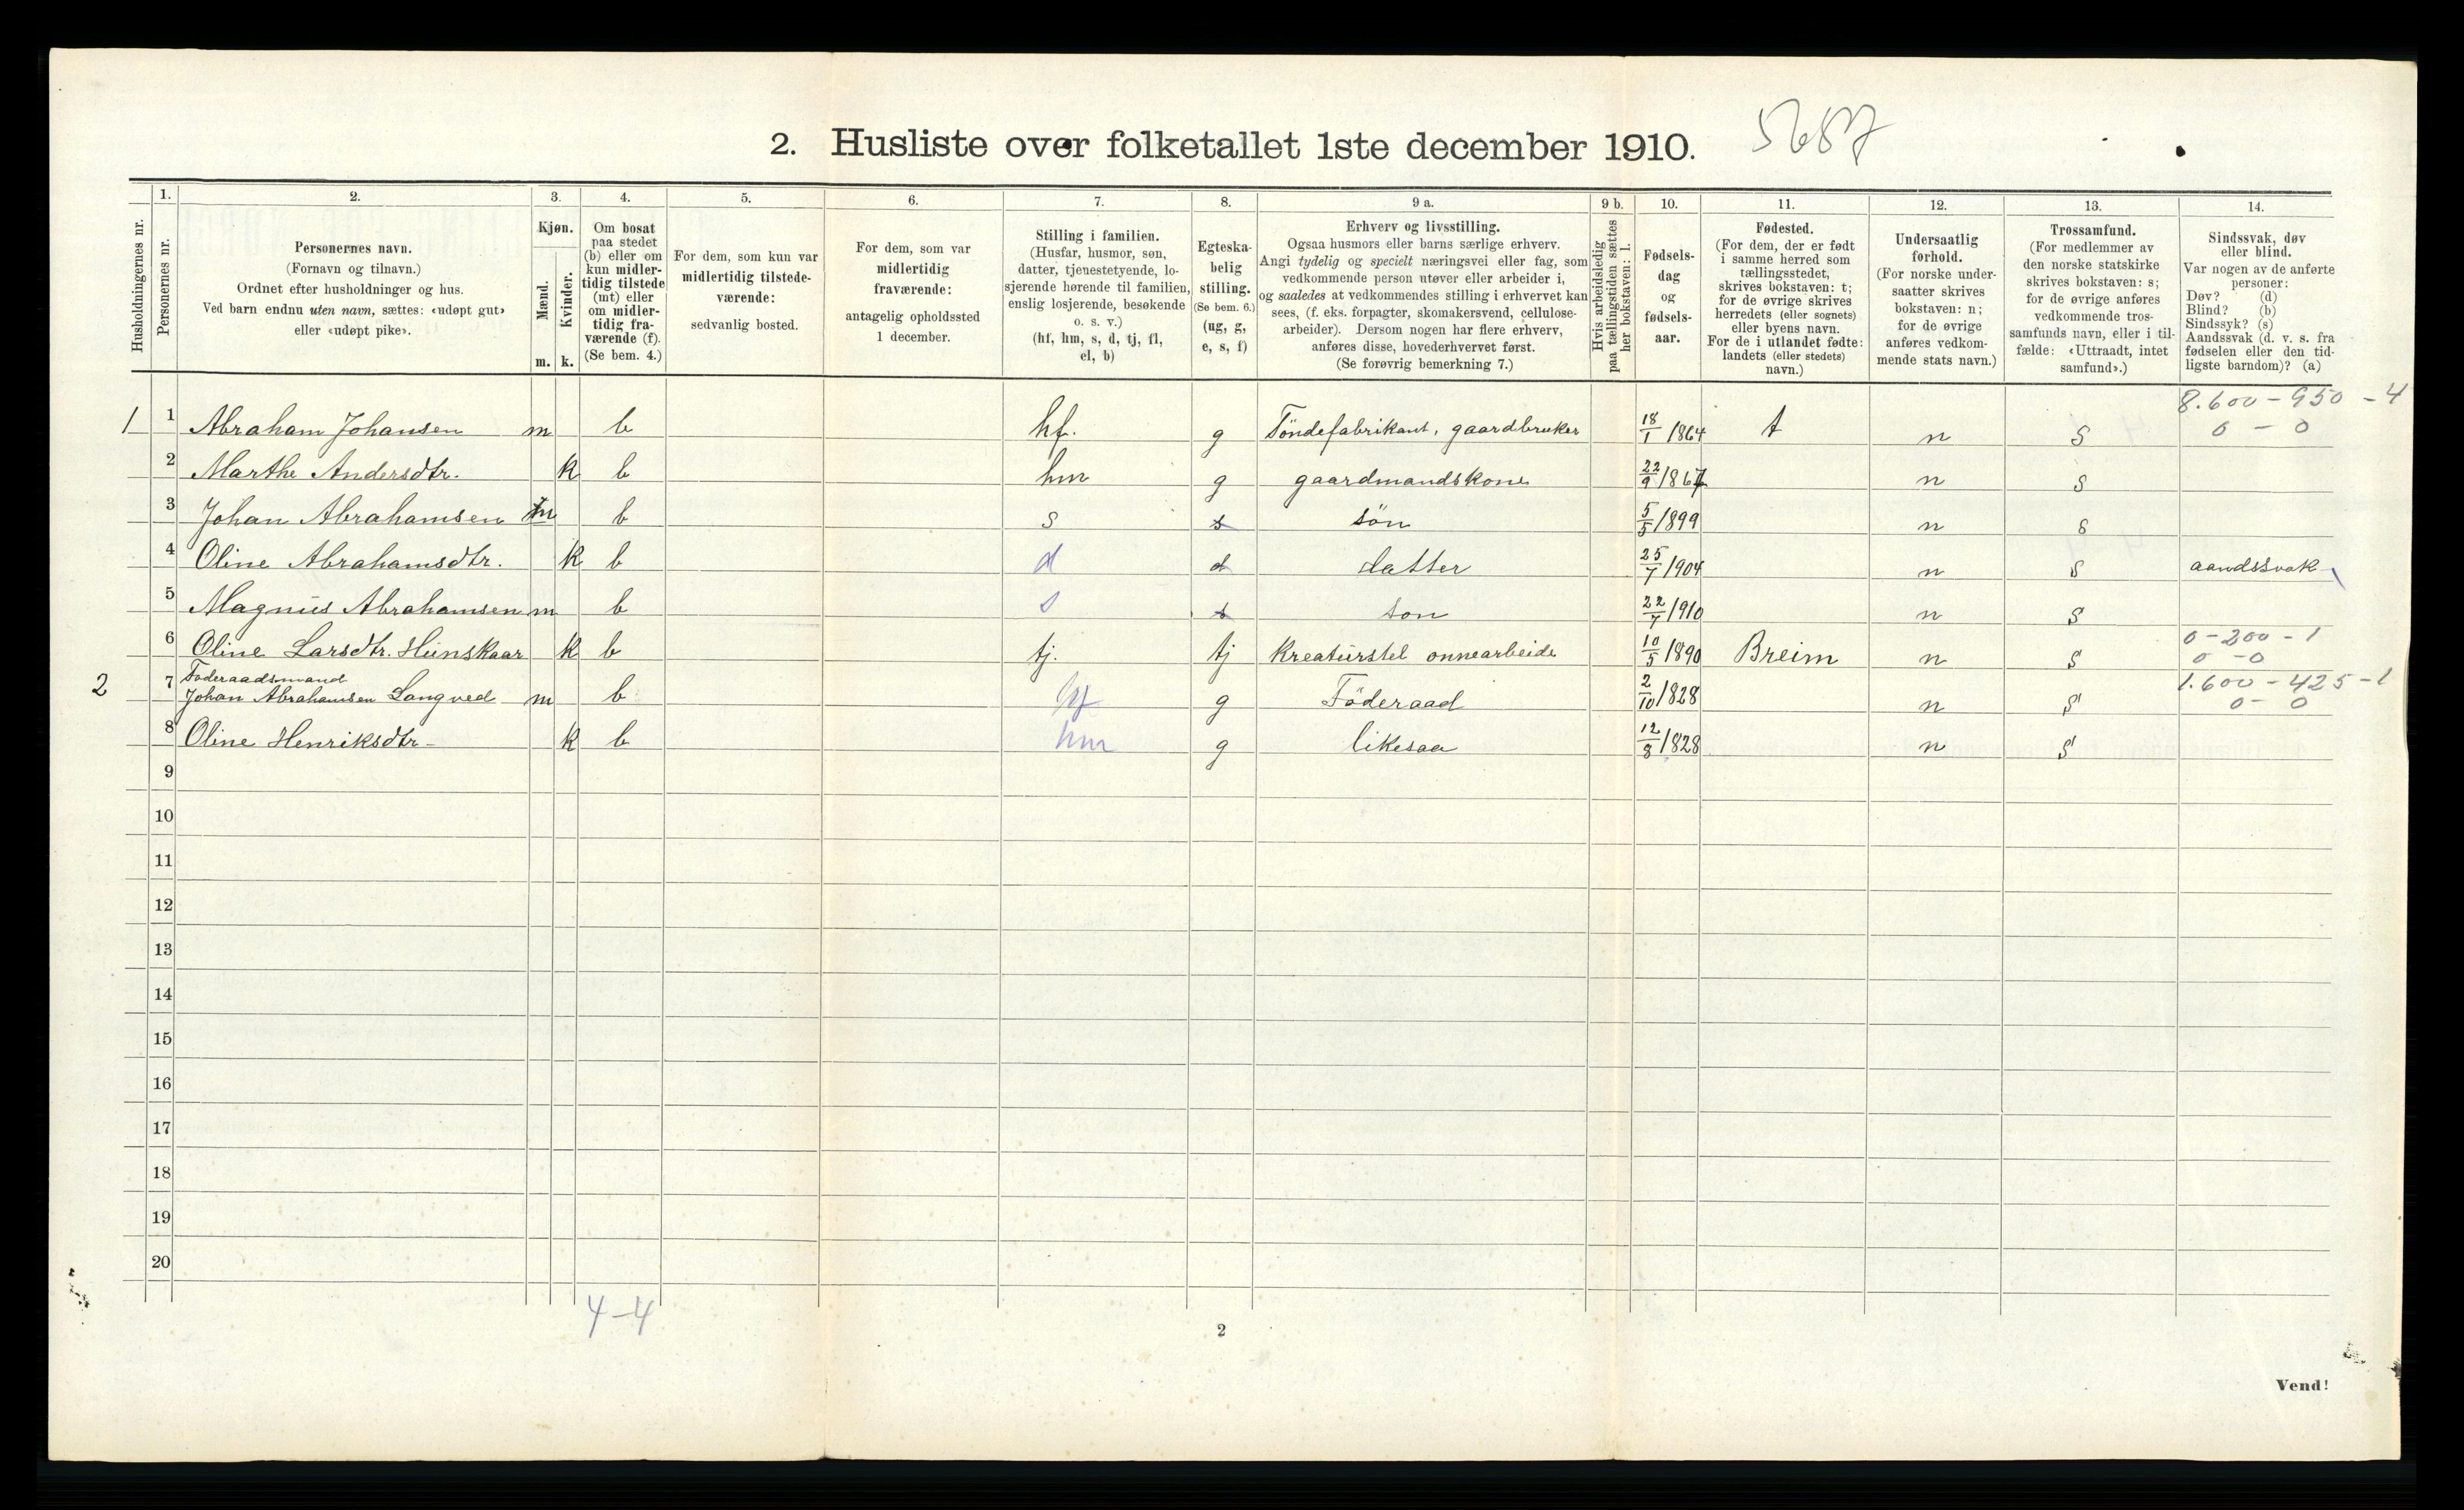 2. Husliste over folketallet 1ste december 1910. 5687
Husholdningernes nr.
1. Personernes nr.
2. Personernes navn.
(Fornavn og tilnavn.)
Ordnet efter husholdninger og hus.
Ved barn endnu uten navn, sættes: «udøpt gut»
eller «udøpt pike».
3. Kjøn.
Mænd. m.
Kvinder. k.
4. Om bosat
paa stedet
(b) eller om
kun midler-
tidig tilstede
(mt) eller
om midler-
tidig fra-
værende (f).
(Se bem. 4.)
5. For dem, som kun var
midlertidig tilstede-
værende:
sedvanlig bosted.
6. For dem, som var
midlertidig
fraværende:
antagelig opholdssted
1 december.
7. Stilling i familien.
(Husfar, husmor, søn,
datter, tjenestetyende, lo-
sjerende hørende til familien,
enslig losjerende, besøkende
o. s. v.)
(hf, hm, s, d, tj, fl,
el, b)
8. Egteska-
belig
stilling.
(Se bem. 6.)
(ug, g,
e, s, f)
9 a. Erhverv og livsstilling.
Ogsaa husmors eller barns særlige erhverv.
Angi tydelig og specielt næringsvei eller fag, som
vedkommende person utøver eller arbeider i,
og saaledes at vedkommendes stilling i erhvervet kan
sees, (f. eks. forpagter, skomakersvend, cellulose-
arbeider). Dersom nogen har flere erhverv,
anføres disse, hovederhvervet først.
(Se forøvrig bemerkning 7.)
9 b. Hvis arbeidsledig
paa tællingstiden sættes
her bokstaven: l.
10. Fødsels-
dag
og
fødsels-
aar.
11. Fødested.
(For dem, der er født
i samme herred som
tællingsstedet,
skrives bokstaven: t;
for de øvrige skrives
herredets (eller sognets)
eller byens navn.
For de i utlandet fødte:
landets (eller stedets)
navn.)
12. Undersaatlig
forhold.
(For norske under-
saatter skrives
bokstaven: n;
for de øvrige
anføres vedkom-
mende stats navn.)
13. Trossamfund.
(For medlemmer av
den norske statskirke
skrives bokstaven: s;
for de øvrige anføres
vedkommende tros-
samfunds navn, eller i til-
fælde: «Uttraadt, intet
samfund».)
14. Sindssvak, døv
eller blind.
Var nogen av de anførte
personer:
Døv? (d)
Blind? (b)
Sindssyk? (s)
Aandssvak (d. v. s. fra
fødselen eller den tid-
ligste barndom)? (a)
8.600 - 950 - 4
1 1 Abraham Johansen m b hf. g Töndefabrikant, gaardbruker 18/1 1864 t n s 0 - 0
2 Marthe Andersdtr. k b hm g gaardmandskone 22/9 1867 n s
3 Johan Abrahamsen m b s s sön 5/5 1899 n s
4 Oline Abrahamsdtr. k b d d datter 25/7 1904 n s aandssvak
5 Magnus Abrahamsen m b s s son 22/7 1910 n s
0-200-1
6 Oline Larsdtr. Hunskaar k b tj. tj Kreaturstel onnearbeide 10/5 1890 Breim n s 0-0
Föderaadsmand 1.600-425-1
2 7 Johan Abrahamsen Langved m b hf g Föderaad 2/10 1828 n s 0- 0
8 Oline Henriksdtr. k b hm g likesaa 12/8 1828 n s
9
10
11
12
13
14
15
16
17
18
19
20
4-4
2
Vend!